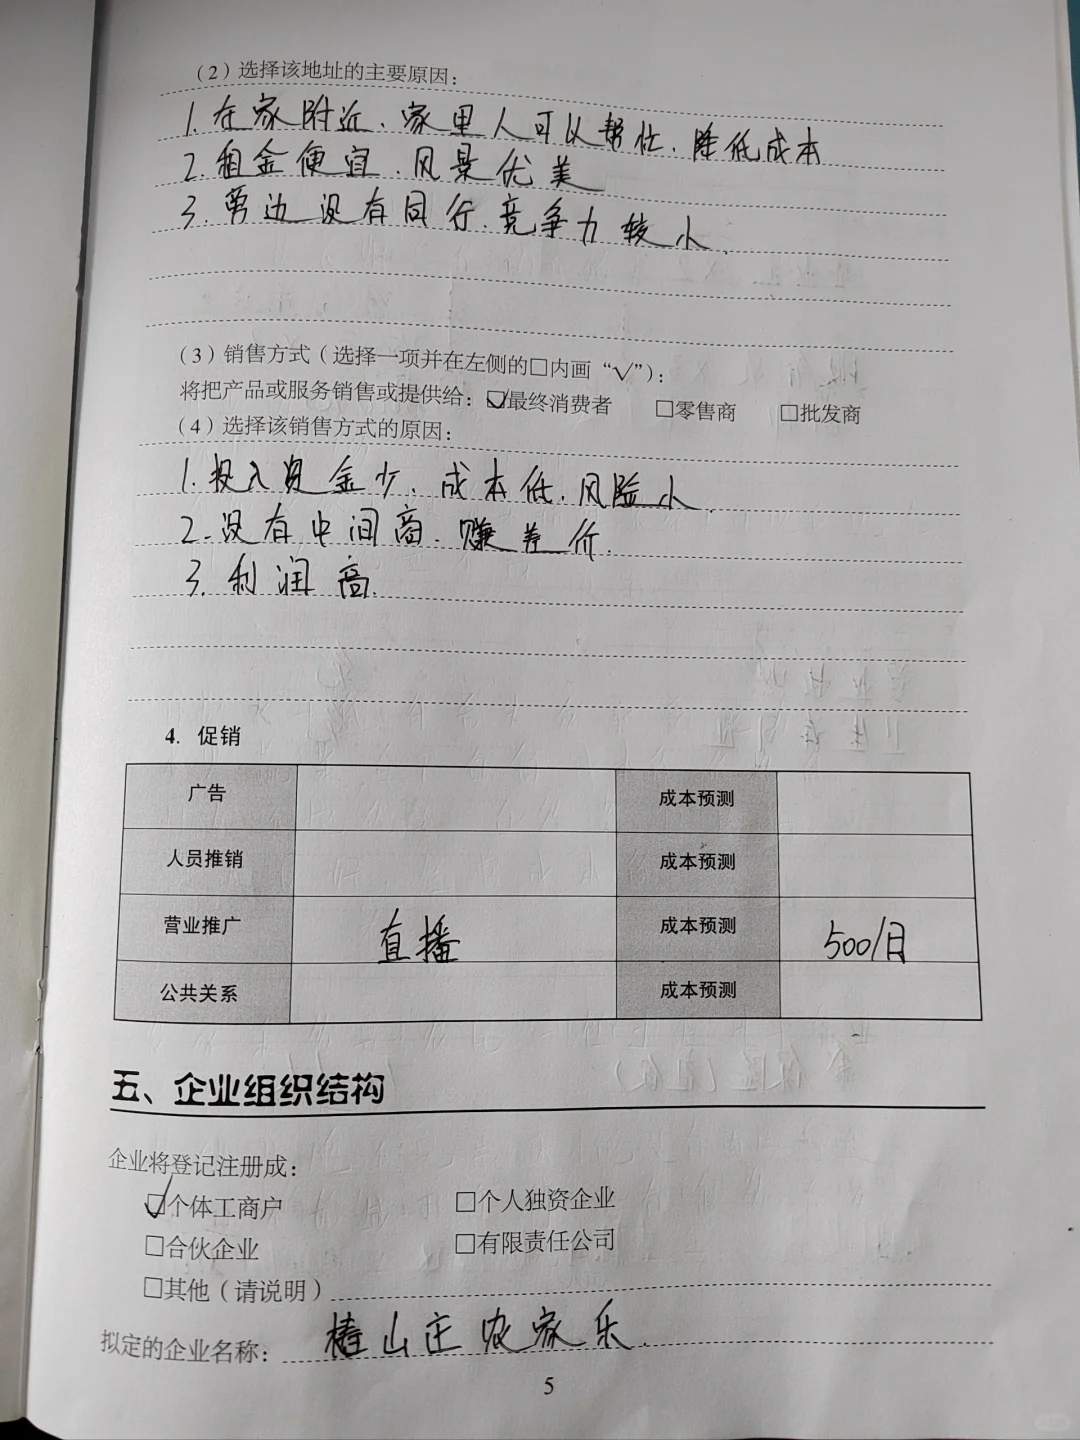 （2）选择该地址的主要原因：
1.在家附近、家里人可以帮忙、降低成本
2.租金便宜、风景优美
3.旁边没有同行、竞争力较小
（3）销售方式（选择一项并在左侧的□内画“√”）：
将把产品或服务销售或提供给：☑最终消费者 □零售商 □批发商
（4）选择该销售方式的原因：
1.投入资金少、成本低、风险小
2.没有中间商、赚差价
3.利润高
4. 促销
广告 成本预测
人员推销 成本预测
营业推广 直播 成本预测 500/月
公共关系 成本预测
五、企业组织结构
企业将登记注册成：
☑个体工商户 □个人独资企业
□合伙企业 □有限责任公司
□其他（请说明）
拟定的企业名称：椿山庄农家乐
5